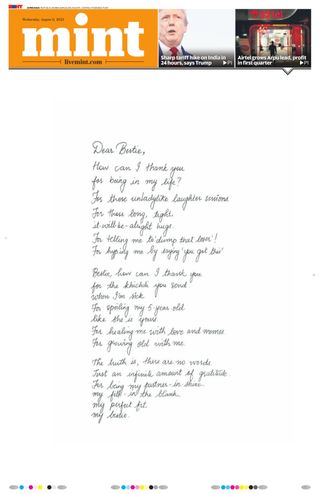 Wednesday, August 6, 2025
mint
livemint.com
Sharp tariff hike on India in
24 hours, says Trump ▶P1
Airtel grows Arpu lead, profit
in first quarter ▶P1
Dear Bestie,
How can I thank you
for being in my life?
For those unladylike laughter sessions
For those long, tight,
it-will-be-alright hugs.
For telling me to 'dump that loser'!
For hyping me by saying 'you got this'
Bestie, how can I thank you
for the khichdi you send
when I'm sick.
For spoiling my 5 year old
like she is yours.
For healing me with love and momos
For growing old with me.
The truth is, there are no words.
Just an infinite amount of gratitude.
For being my partner-in-shine.
my fill-in the blank.
my perfect fit.
my bestie.